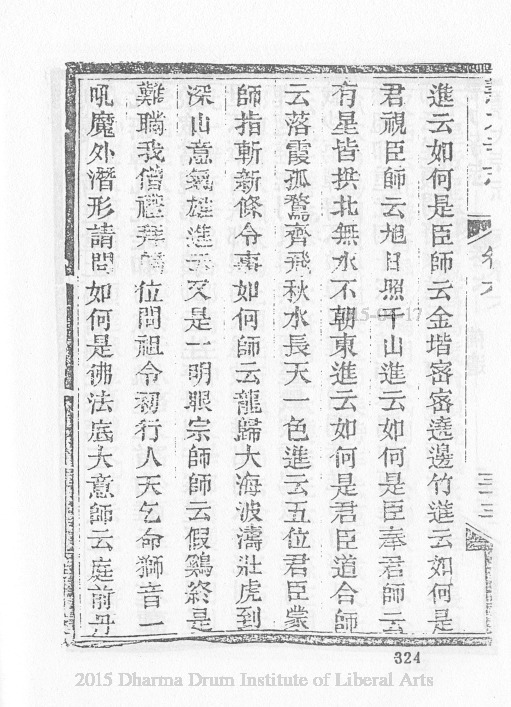 進云如何是臣師云金堦密密遶邊竹進云如何是
君視臣師云旭日照千山進云如何是臣奉君師云
有星皆拱北無水不朝東進云如何是君臣道合師
云落霞孤鶩齊飛秋水長天一色進云五位君臣蒙
師指斬新條令事如何師云龍歸大海波濤壯虎到
深山意氣雄進云又是一明眼宗師師云假鷄終是
難瞞我僧禮拜 位問祖令初行人天乞命獅音一
吼魔外潛形請問如何是佛法底大意師云庭前丹
324
2015 Dharma Drum Institute of Liberal Arts